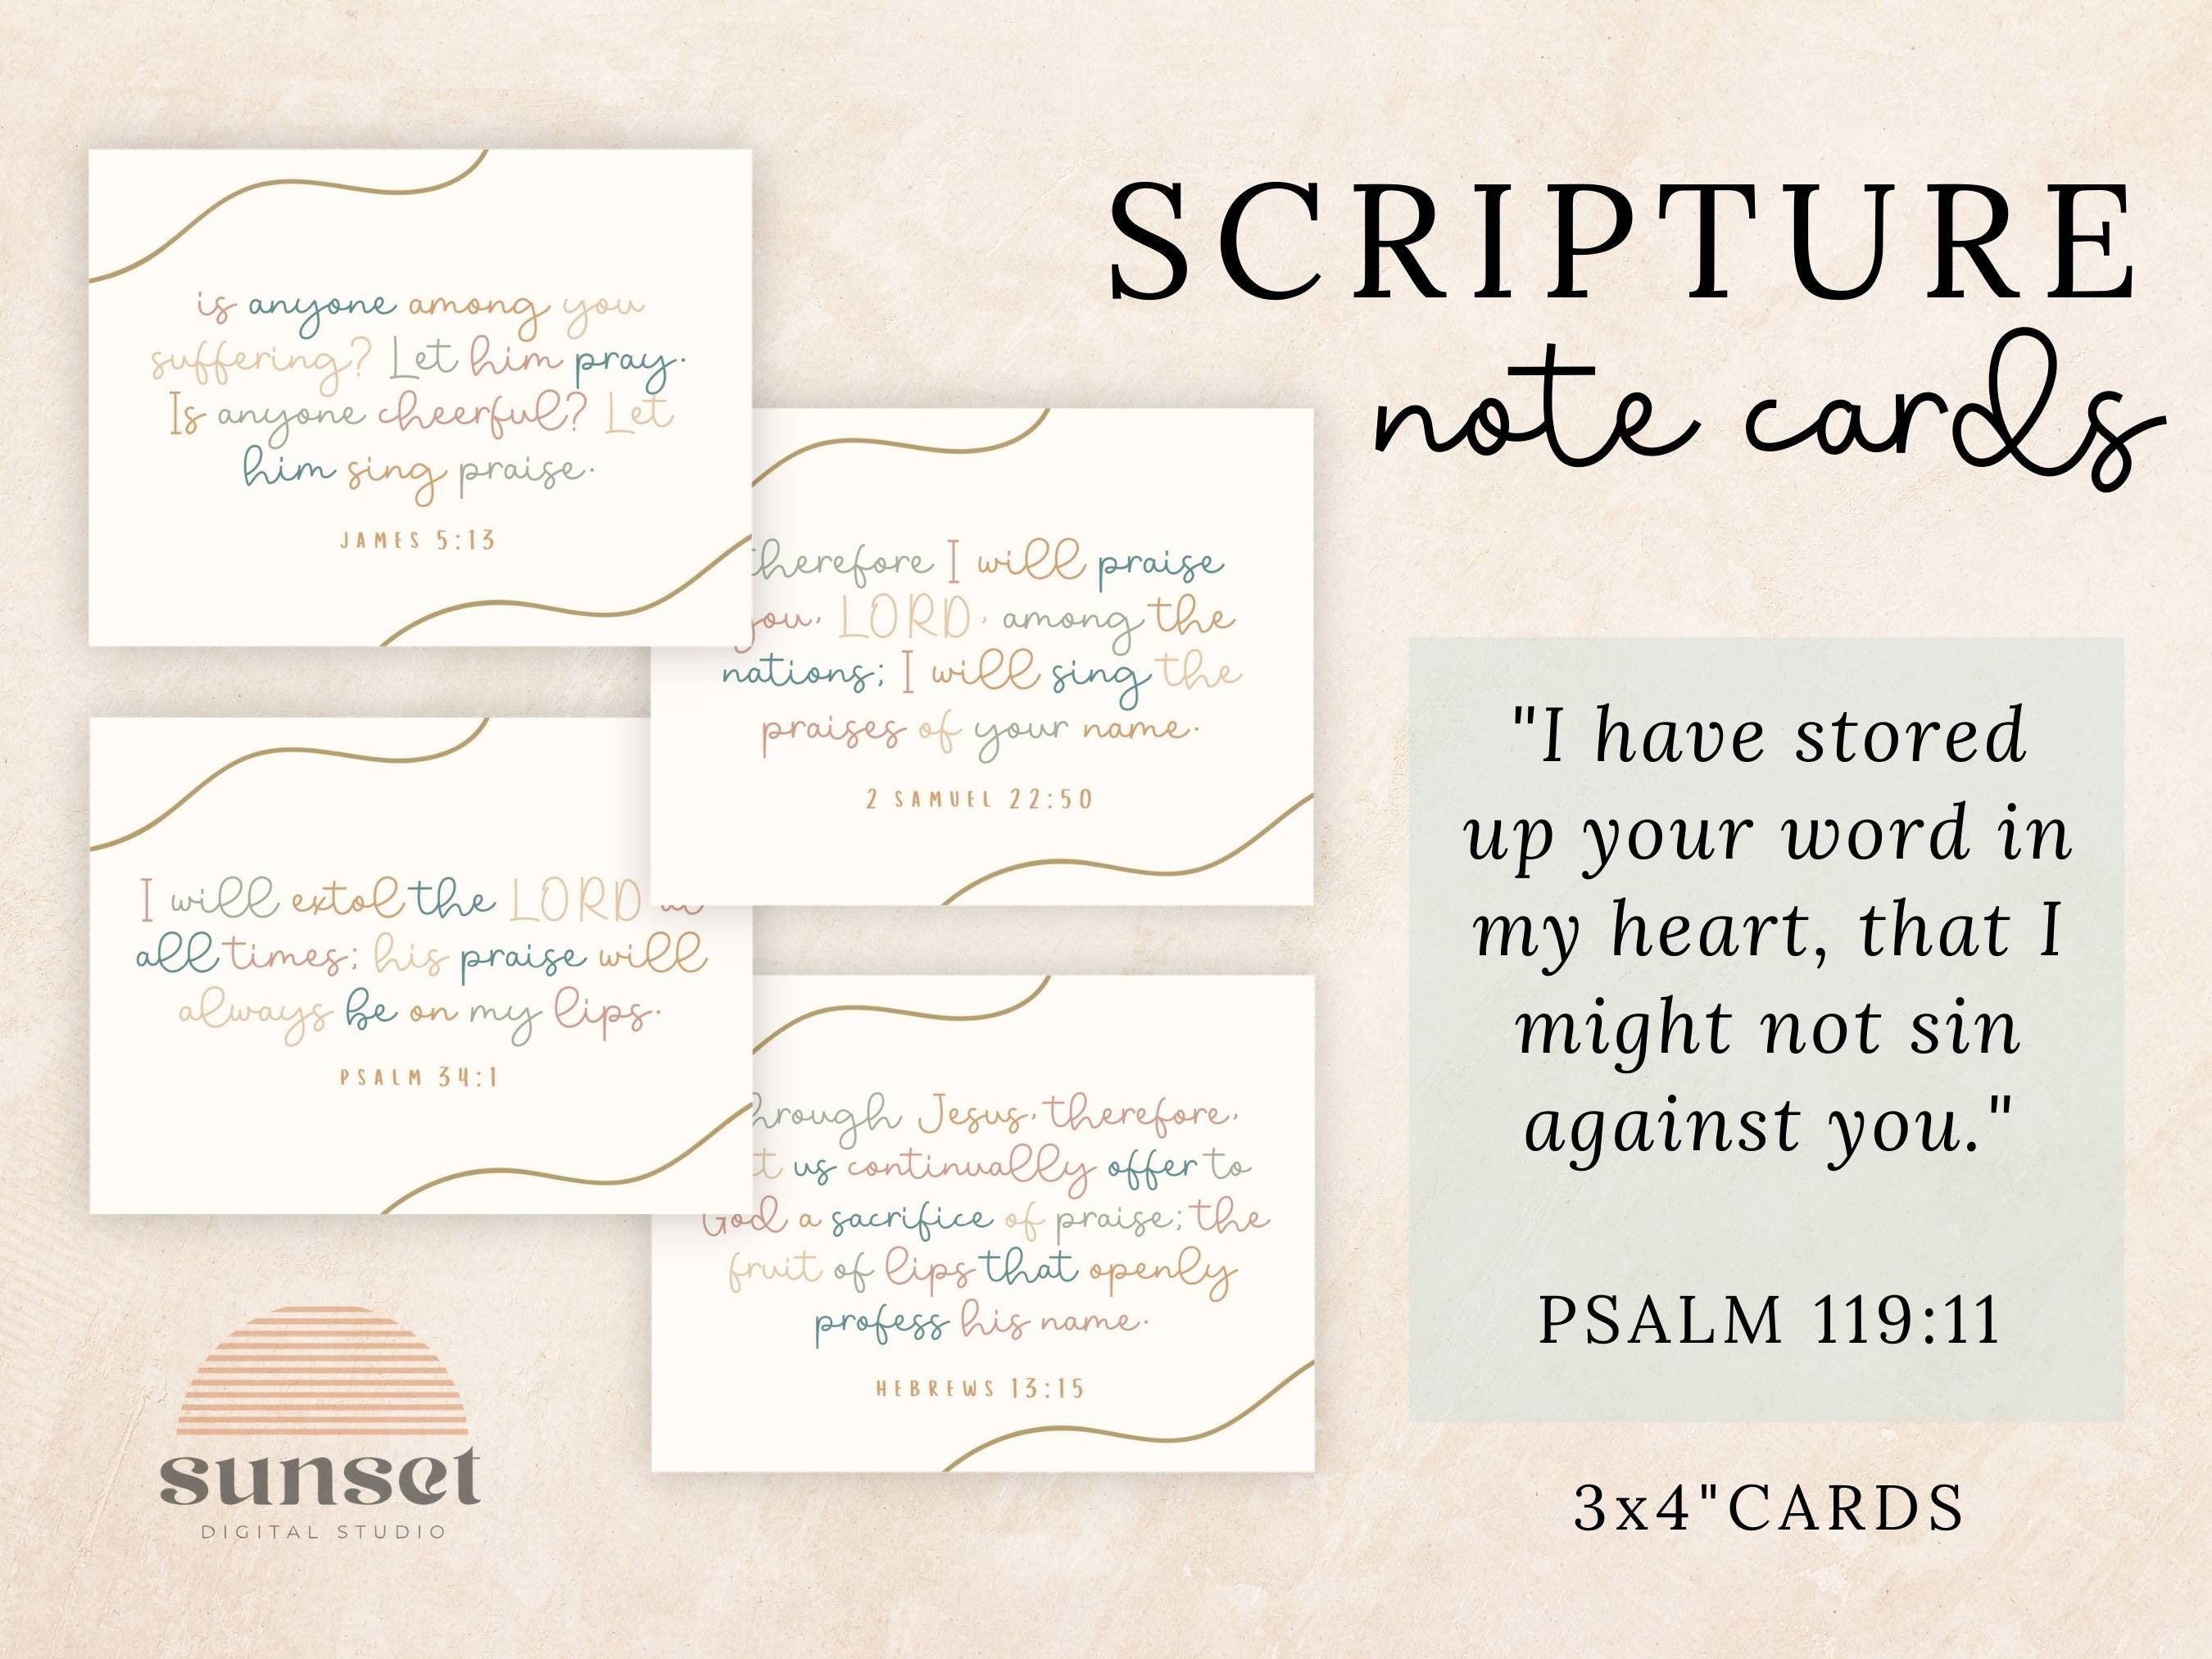 SCRIPTURE
note cards
is anyone among you
suffering? Let him pray.
Is anyone cheerful? Let
him sing praise.
JAMES 5:13
therefore I will praise
you, LORD, among the
nations; I will sing the
praises of your name.
2 SAMUEL 22:50
I will extol the LORD
all times; his praise will
always be on my lips.
PSALM 34:1
hrough Jesus, therefore,
us continually offer to
God a sacrifice of praise; the
fruit of lips that openly
profess his name.
HEBREWS 13:15
"I have stored
up your word in
my heart, that I
might not sin
against you."
PSALM 119:11
3x4"CARDS
sunset
DIGITAL STUDIO